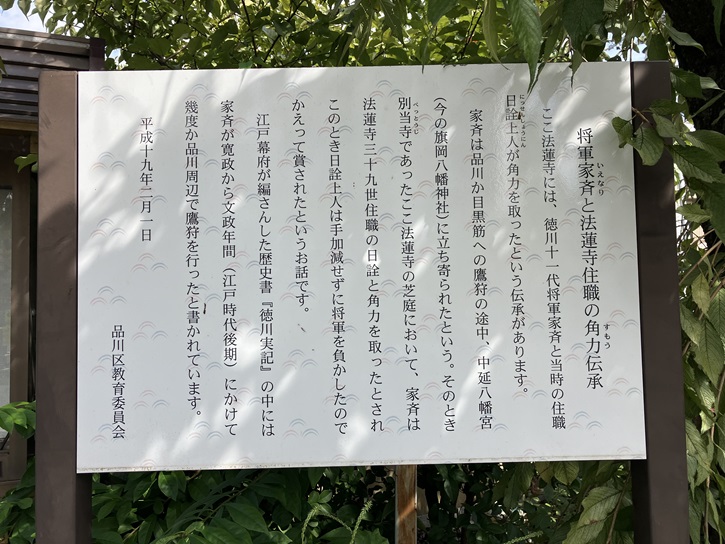 将軍家斉と法蓮寺住職の角力伝承
いえなり
すもう
ここ法蓮寺には、徳川十一代将軍家斉と当時の住職
日詮上人が角力を取ったという伝承があります。
にっせんしょうにん
家斉は品川か目黒筋への鷹狩の途中、中延八幡宮
(今の旗岡八幡神社)に立ち寄られたという。そのとき
別当寺であったここ法蓮寺の芝庭において、家斉は
べっとうじ
法蓮寺三十九世住職の日詮と角力を取ったとされ
このとき日詮上人は手加減せずに将軍を負かしたので
かえって賞されたというお話です。
江戸幕府が編さんした歴史書『徳川実記』の中には
家斉が寛政から文政年間(江戸時代後期)にかけて
幾度か品川周辺で鷹狩を行ったと書かれています。
平成十九年二月一日
品川区教育委員会